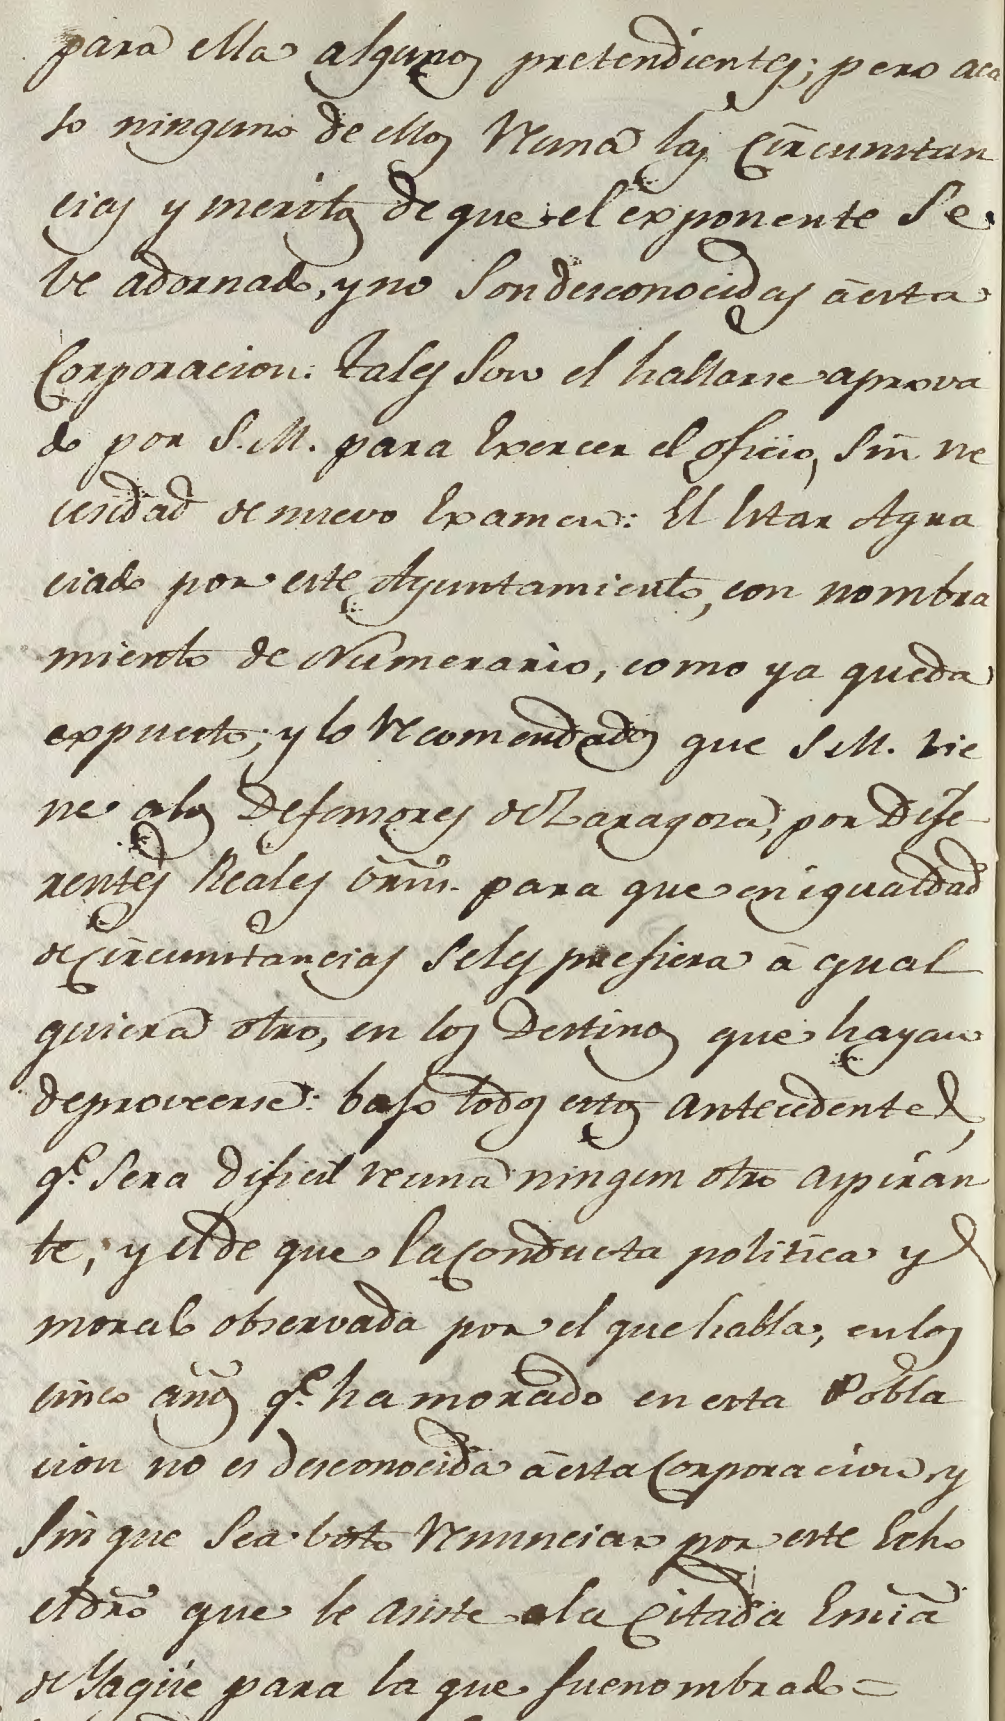 para ella algunos pretendientes; pero aca
so ninguno de ellos reuna las circunstan
cias y meritos de que el exponente Se
ve adornado, y no Son desconocidas à esta
Corporacion: tales Son el hallarse aprova
do por S.M. para Exercer el oficio, Sin ne
cesidad de nuevo Examen: El Estar Agra
ciado por este Ayuntamiento, con nombra
miento de Numerario, como ya queda
expuesto; y lo recomendados que S.M. tie
ne a los Defensores de Zaragoza, por Dife
rentes Reales Ôrns. para que en igualdad
de circunstancias Se les prefiera à qual
quiera otro, en los Destinos que hayan
de proveerse: bajo todos estos antecedentes,
q.e Sera dificil reuna ningun otro aspiran
te, y el de que la conducta politica y
moral observada por el que habla, en los
cinco años q.e ha morado en esta Pobla
cion no es desconocida à esta Corporacion, y
Sin que Sea visto renunciar por este Echo
el dro que le asiste a la citada Esnia
de Yagüe para la que fue nombrado =